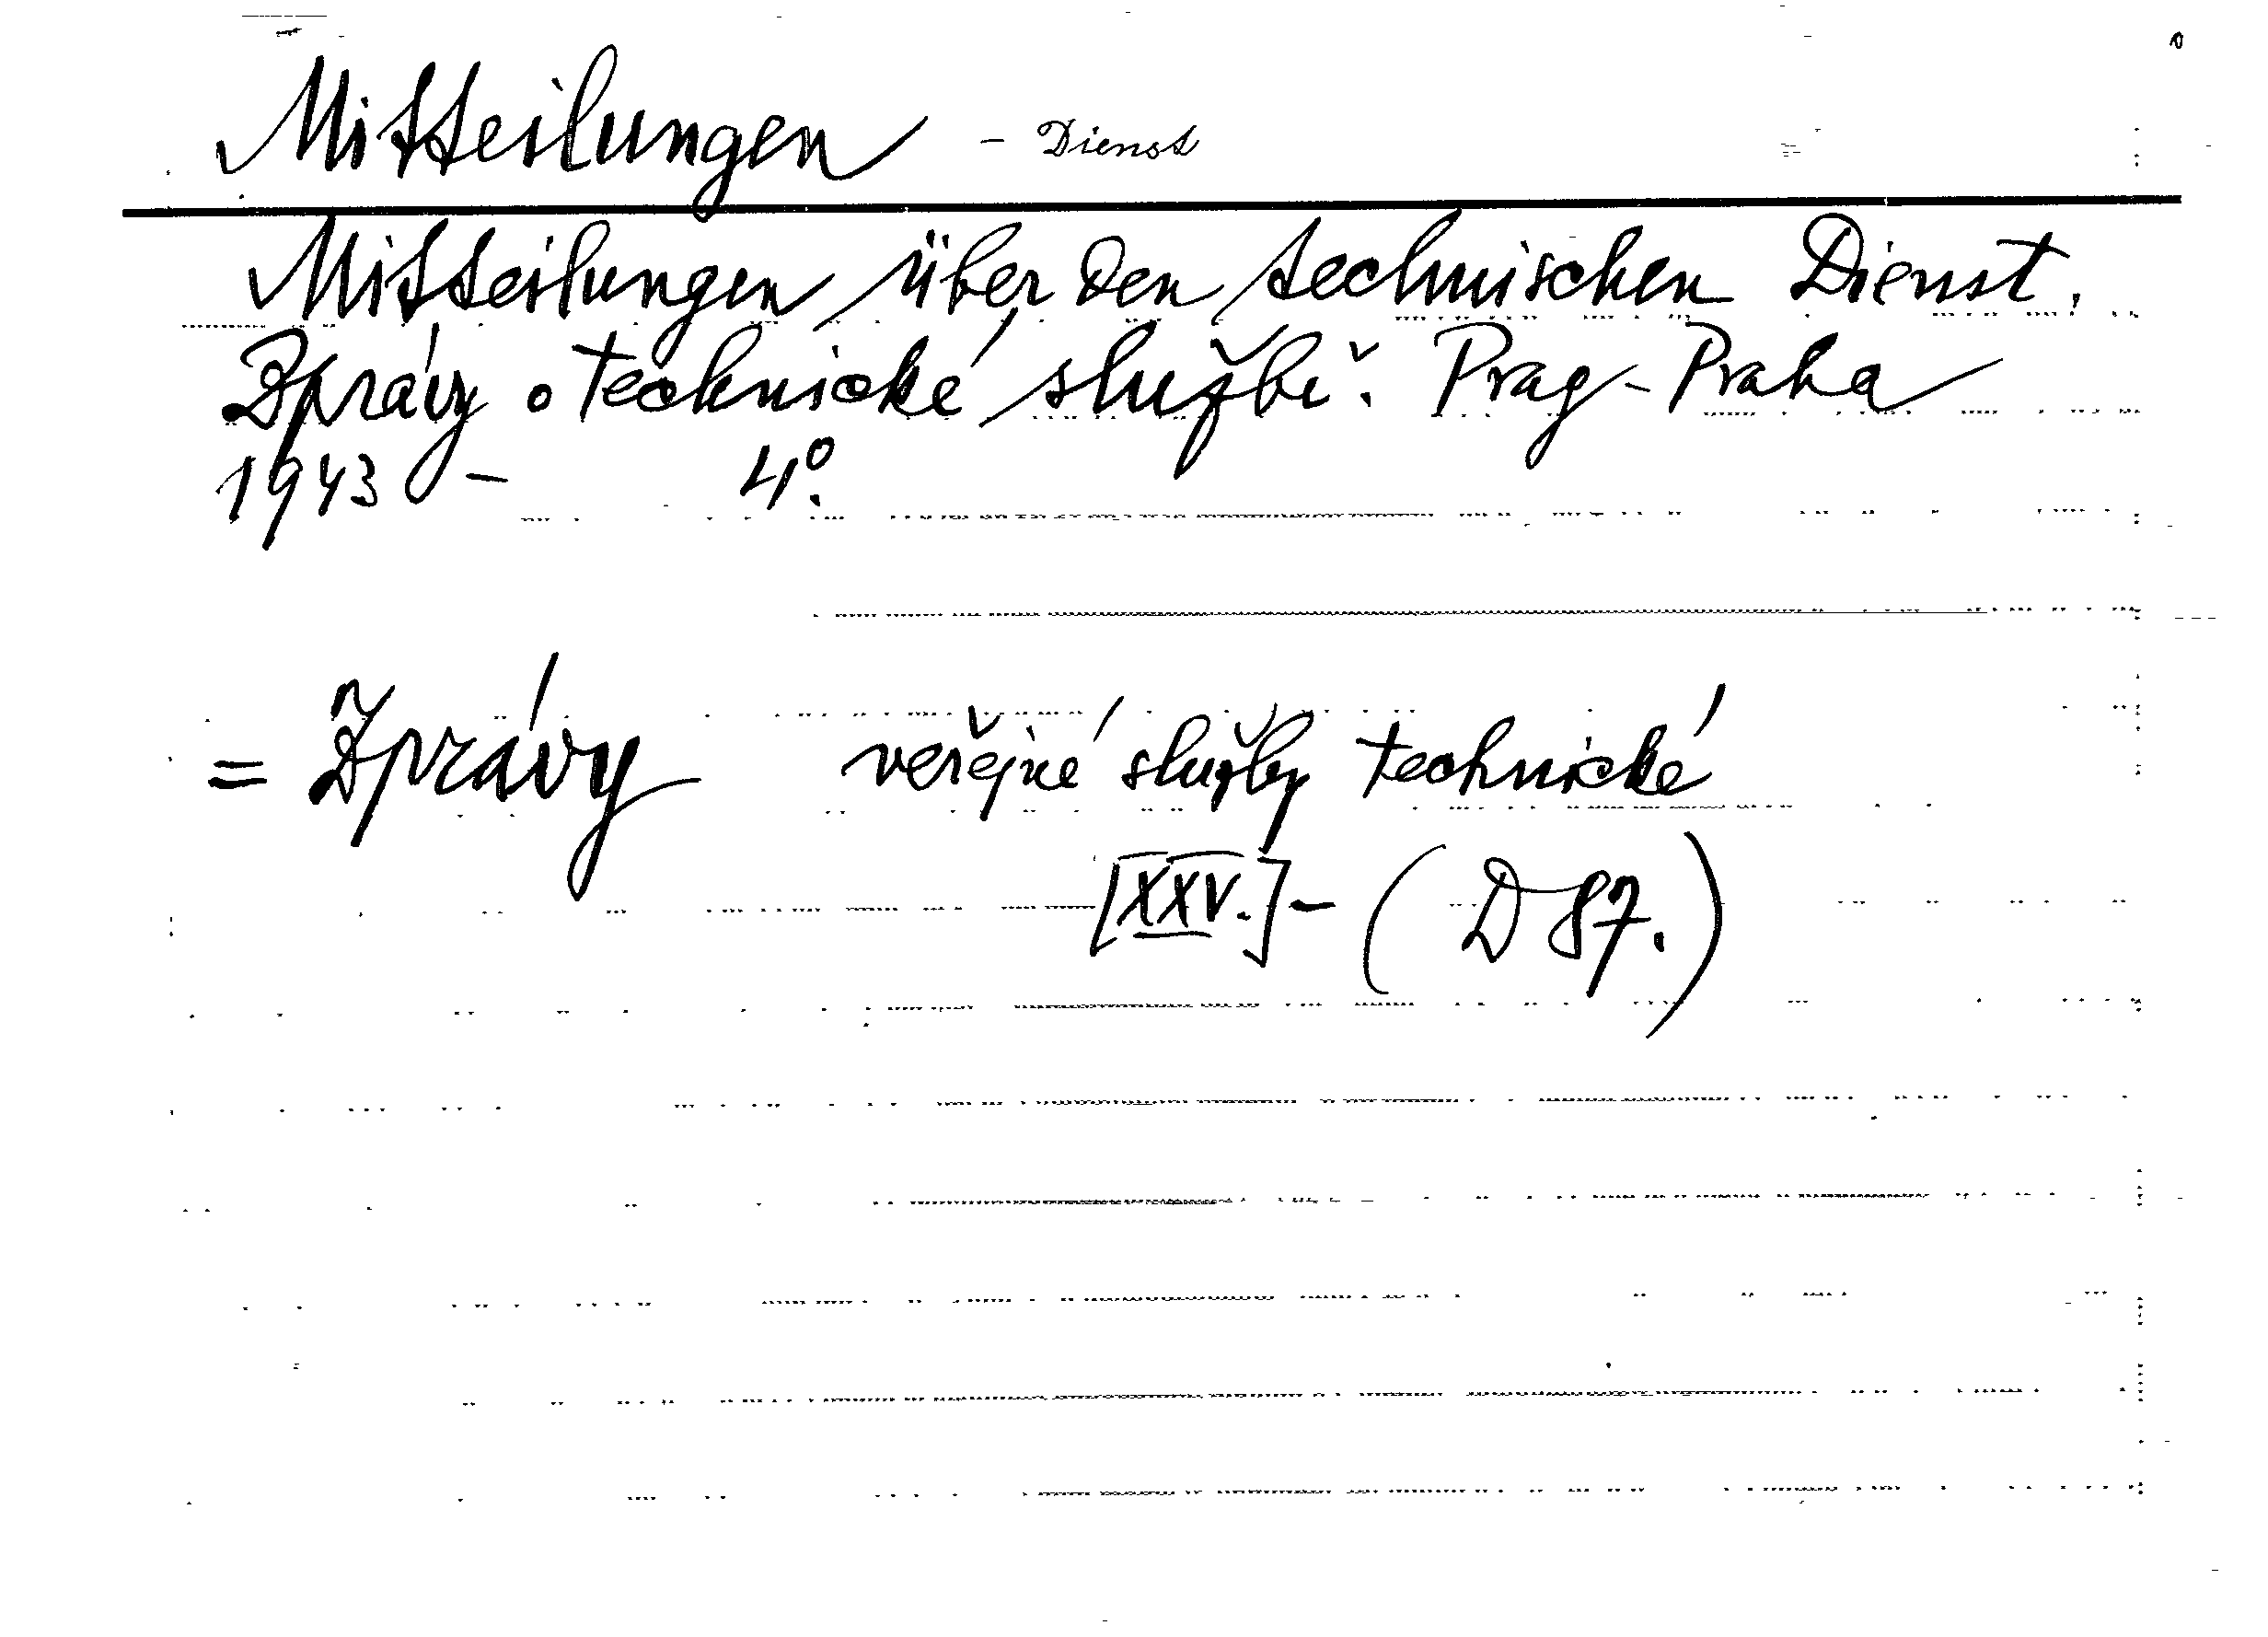 Mitteilungen - Dienst
Mitteilungen über den technischen Dienst.
Zprávy o technické službě. Prag-Praha
1943 - 4°.
= Zprávy veřejné služby technické
[XXV.] - (D 87.)